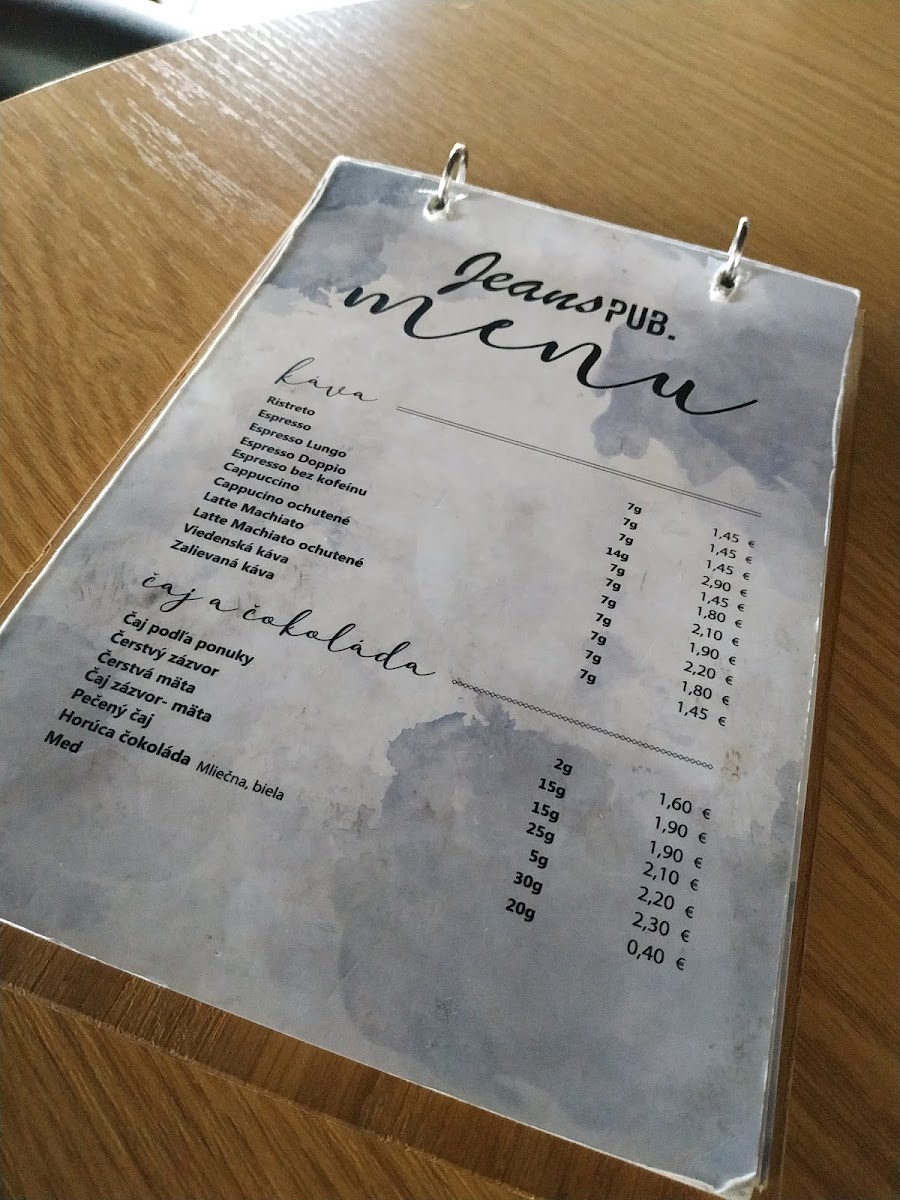 Jeans PUB.
menu
káva
Ristreto 7g 1,45 €
Espresso 7g 1,45 €
Espresso Lungo 7g 1,45 €
Espresso Doppio 14g 2,90 €
Espresso bez kofeínu 7g 1,45 €
Cappuccino 7g 1,80 €
Cappucíno ochutené 7g 2,10 €
Latte Machiato 7g 1,90 €
Latte Machiato ochutené 7g 2,20 €
Viedenská káva 7g 1,80 €
Zalievaná káva 7g 1,45 €
čaj a čokoláda
Čaj podľa ponuky 2g 1,60 €
Čerstvý zázvor 15g 1,90 €
Čerstvá mäta 15g 1,90 €
Čaj zázvor- mäta 25g 2,10 €
Pečený čaj 5g 2,20 €
Horúca čokoláda Mliečna, biela 30g 2,30 €
Med 20g 0,40 €